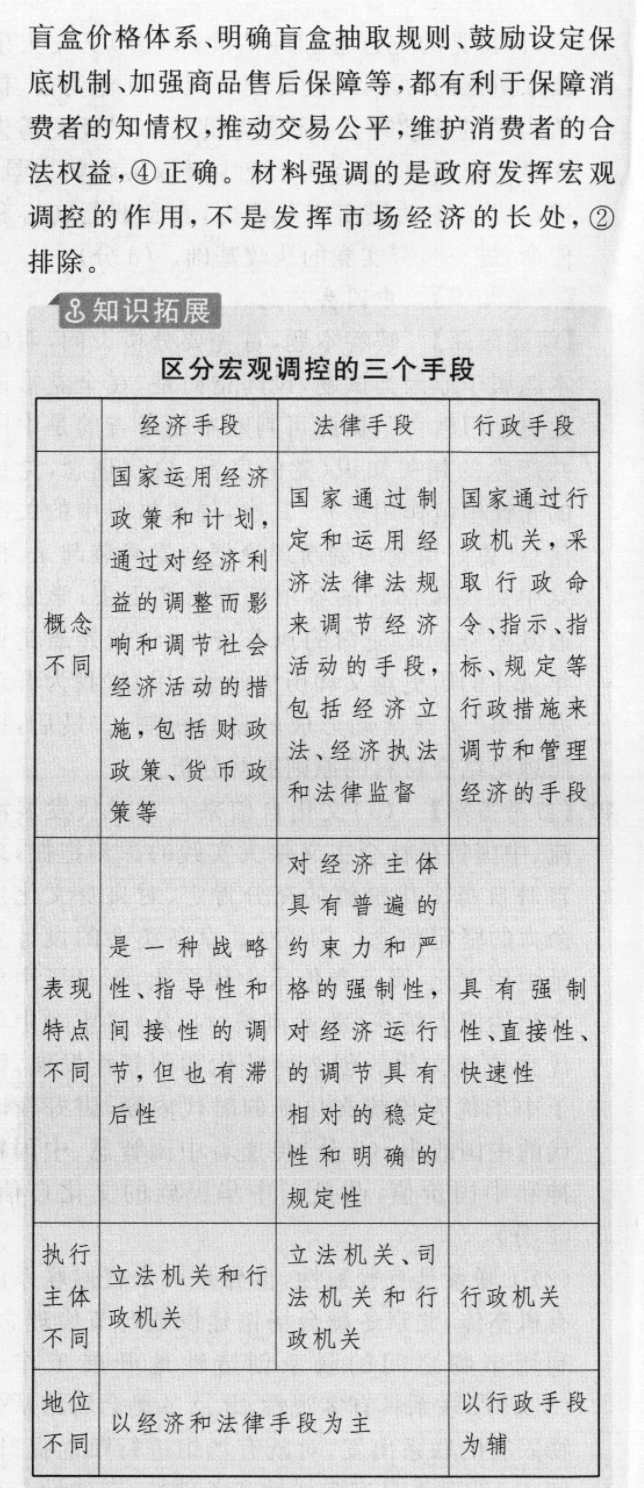 盲盒价格体系、明确盲盒抽取规则、鼓励设定保
底机制、加强商品售后保障等,都有利于保障消
费者的知情权,推动交易公平,维护消费者的合
法权益,④正确。材料强调的是政府发挥宏观
调控的作用,不是发挥市场经济的长处,②
排除。
知识拓展
区分宏观调控的三个手段
经济手段
法律手段
行政手段
概念
不同
国家运用经济
政策和计划,
通过对经济利
益的调整而影
响和调节社会
经济活动的措
施,包括财政
政策、货币政
策等
国家通过制
定和运用经
济法律法规
来调节经济
活动的手段,
包括经济立
法、经济执法
和法律监督
国家通过行
政机关,采
取行政命
令、指示、指
标、规定等
行政措施来
调节和管理
经济的手段
表现
特点
不同
是一种战略
性、指导性和
间接性的调
节,但也有滞
后性
对经济主体
具有普遍的
约束力和严
格的强制性,
对经济运行
的调节具有
相对的稳定
性和明确的
规定性
具有强制
性、直接性、
快速性
执行
主体
不同
立法机关和行
政机关
立法机关、司
法机关和行
政机关
行政机关
地位
不同
以经济和法律手段为主
以行政手段
为辅